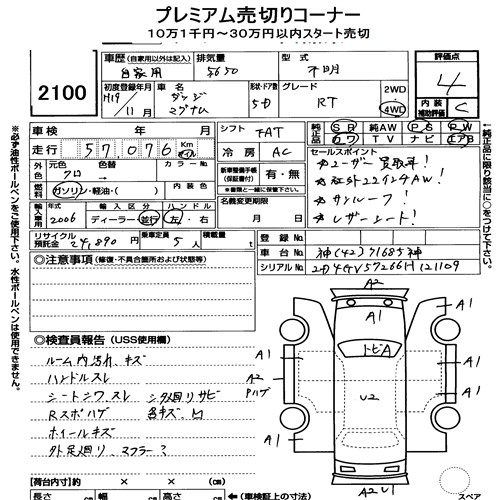 プレミアム売切りコーナー
10万1千円～30万円以内スタート売切
2100
車歴 (自家用以外は記入) 自家用
排気量 5650
型式 不明
評価点 4
内装補助評価 C
初度登録年月 H19/11月
車名 ダッジ マグナム
形状・ドア数 5D
グレード RT
2WD・4WD
車検 年 月
走行 57076 Km マイル
シフト FAT
冷房 AC
純正品 SR 純AW PS PW カワ TV ナビ エアB
セールスポイント
★ユーザー買取車！
★社外22インチAW！
★サンルーフ！
★レザーシート！
外元色 クロ 色替
内装色
燃料 ガソリン・軽油・( )
新車整備手帳(保証書付) 有・無
輸入車用 2006
輸入区分 ディーラー・並行
ハンドル 左・右
名義変更期限 月 日
リサイクル預託金 24,890 円
乗車定員 5人
積載量 t
登録No
車台No 神(42)71685神
シリアルNo 2D4GV57266H121109
◎注意事項 (修復・不具合箇所および状態等)
◎検査員報告 (USS使用欄)
ルーム内汚れ、キズ
ハンドルスレ
シートシワ、スレ シタ廻リサビ
Rスポハゲ 各キズ、凹
ホイールキズ
外足廻リ、マフラー？
A2
A1 A1
トビA
A1 A1
A1
A2 Pハゲ
U2
A1
A1 A1
A2 U1
スペア
【荷台内寸】約 × × (車検証上の寸法)
長さ cm 幅 cm 高さ cm
※必ず油性ボールペンをご使用下さい。水性ボールペンは使用できません。